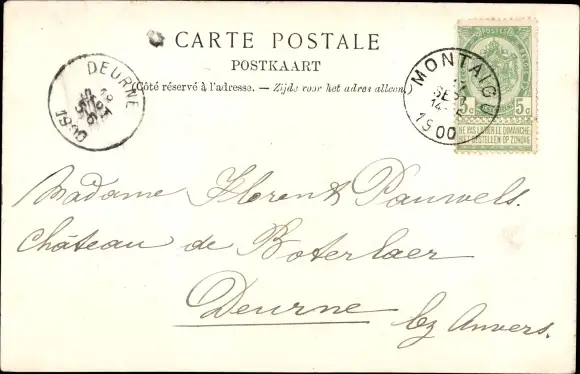 CARTE POSTALE
POSTKAART
(Côté réservé à l'adresse. — Zijde voor het adres alleen
DEURNE
19
1900
MONTAIGU
SE
14
1900
POSTES
5c 5c
NE PAS LIVRER LE DIMANCHE
NIET BESTELLEN OP ZONDAG
Madame Florent Pauwels.
Château de Boterlaer
Deurne bz Anvers.